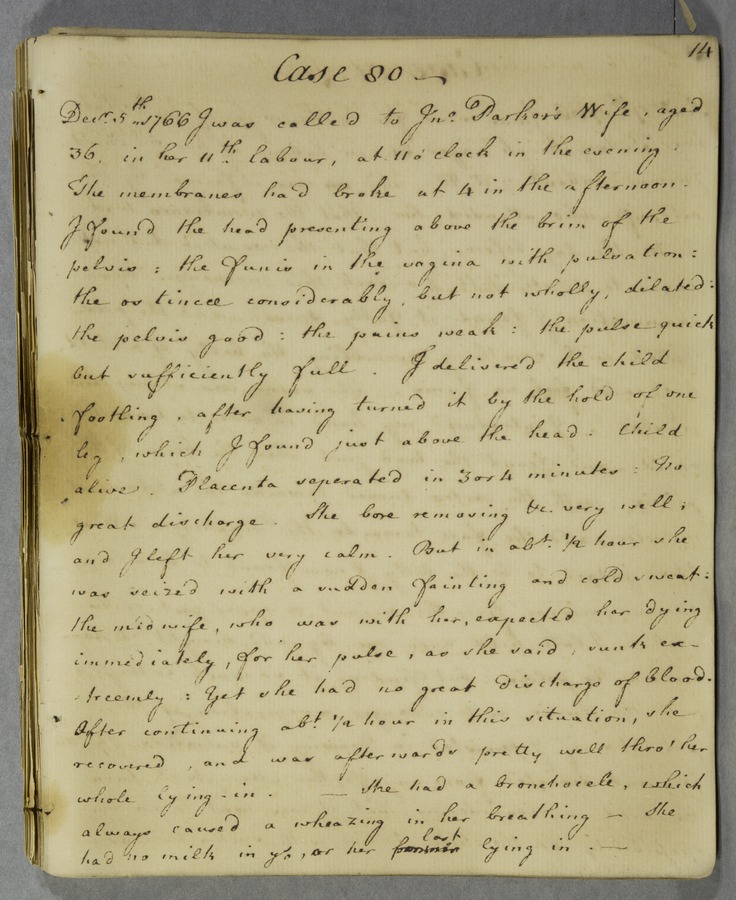 14
Case 80 —
Decr. 5th 1766 I was called to Jno. Darker's Wife, aged
36, in her 11th labour, at 11 o'clock in the evening.
The membranes had broke at 4 in the afternoon.
I found the head presenting above the brim of the
pelvis : the funis in the vagina with pulsation :
the os tincæ considerably, but not wholly, dilated :
the pelvis good : the pains weak : the pulse quick
but sufficiently full . I delivered the child
footling , after having turned it by the hold of one
leg , which I found just above the head . Child
alive . Placenta seperated in 3 or 4 minutes : No
great discharge . She bore removing &c. very well ;
and I left her very calm . But in abt. 1/2 hour she
was seized with a sudden fainting and cold sweat :
the midwife, who was with her, expected her dying
immediately, for her pulse, as she said, sunk ex-
-treemly : Yet she had no great discharge of blood.
After continuing abt. 1/2 hour in this situation, she
recovered , and was afterwards pretty well thro' her
whole lying-in . — She had a bronchocele, which
always caused a wheazing in her breathing — She
had no milk in ys, or her last lying in . —